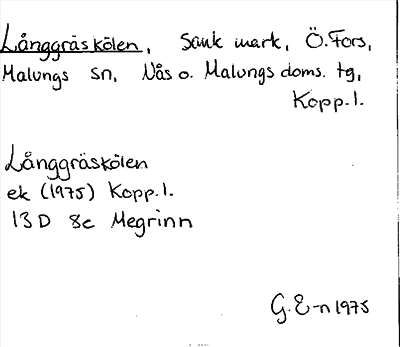 Långgräskölen, Sank mark, Ö. Fors,
Malungs sn, Nås o. Malungs doms. tg,
Kopp. l.
Långgräskölen
ek (1975) Kopp. l.
13 D 8c Megrinn
G. E-n 1975